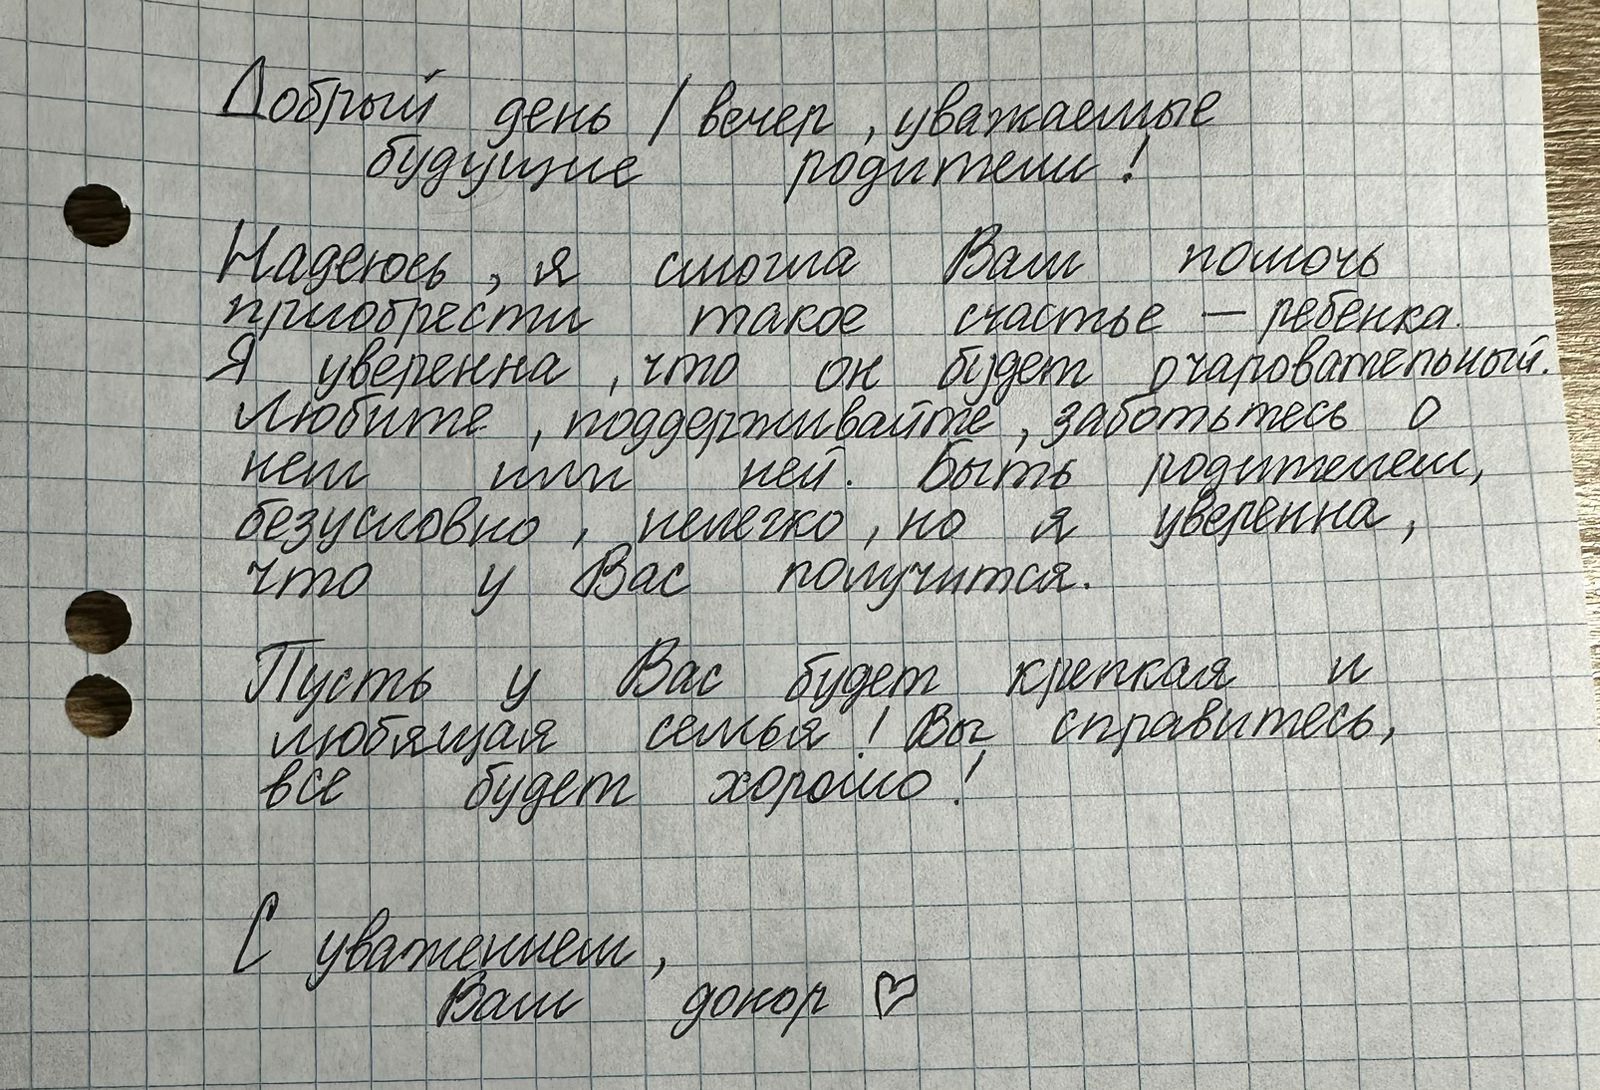 Добрый день / вечер, уважаемые
будущие родители!
Надеюсь, я смогла Вам помочь
приобрести такое счастье — ребенка.
Я уверенна, что он будет очаровательный.
Любите, поддерживайте, заботьтесь о
нем или ней. Быть родителем,
безусловно, нелегко, но я уверенна,
что у Вас получится.
Пусть у Вас будет крепкая и
любящая семья! Вы справитесь,
все будет хорошо!
С уважением,
Ваш донор ♡